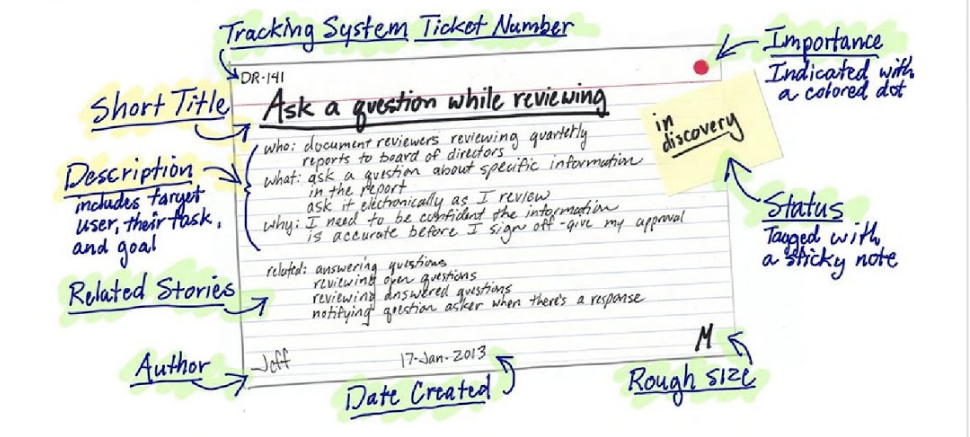 Tracking System Ticket Number
Importance
Indicated with
a colored dot
DR-141
Short Title
Ask a question while reviewing
in
discovery
who: document reviewers reviewing quarterly
reports to board of directors
what: ask a question about specific information
in the report
ask it electronically as I review
why: I need to be confident the information
is accurate before I sign off - give my approval
Description
includes target
user, their task,
and goal
Status
Tagged with
a sticky note
related: answering questions
reviewing open questions
reviewing answered questions
notifying question asker when there's a response
Related Stories
Author
Jeff
17-Jan-2013
M
Date Created
Rough size